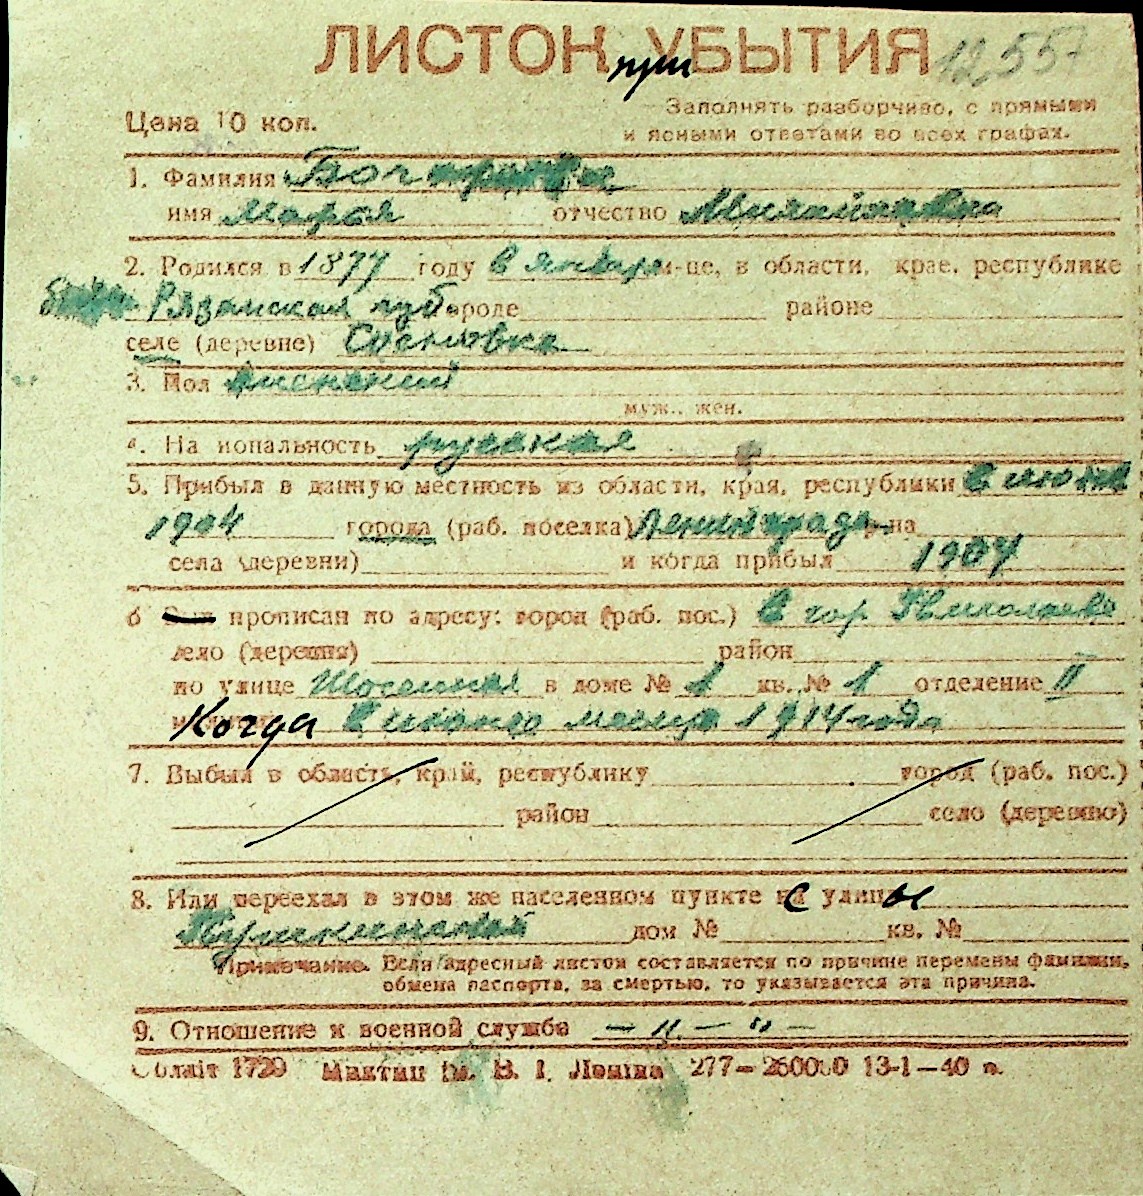 ЛИСТОК при УБЫТИЯ 12557
Заполнять разборчиво, с прямыми
Цена 10 коп.
и ясными ответами во всех графах.
1. Фамилия
имя Марья отчество
2. Родился в 1877 году в январ м-це, в области, крае, республике
Рязанская губ городе районе
селе (деревне) Сосновка
3. Пол женский
муж., жен.
4. На иональность русская
5. Прибыл в данную местность из области, края, республики в июне
1904 города (раб. поселка) Ленинграда на
села (деревни) и когда прибыл 1904
6 прописан по адресу: город (раб. пос.) в гор. Николаеве
село (деревня) район
по улице Шосейная в доме № 1 кв. № 1 отделение II
Когда в июне месяце 1914 года
7. Выбыл в область, край, республику город (раб. пос.)
район село (деревню)
8. Или переехал в этом же населенном пункте с улицы
дом № кв. №
Примечание. Если адресный листок составляется по причине перемены фамилии,
обмена паспорта, за смертью, то указывается эта причина.
9. Отношение к военной службе — " — " —
Облліт 1720 В. І. Леніна 277—260000 13-1—40 р.